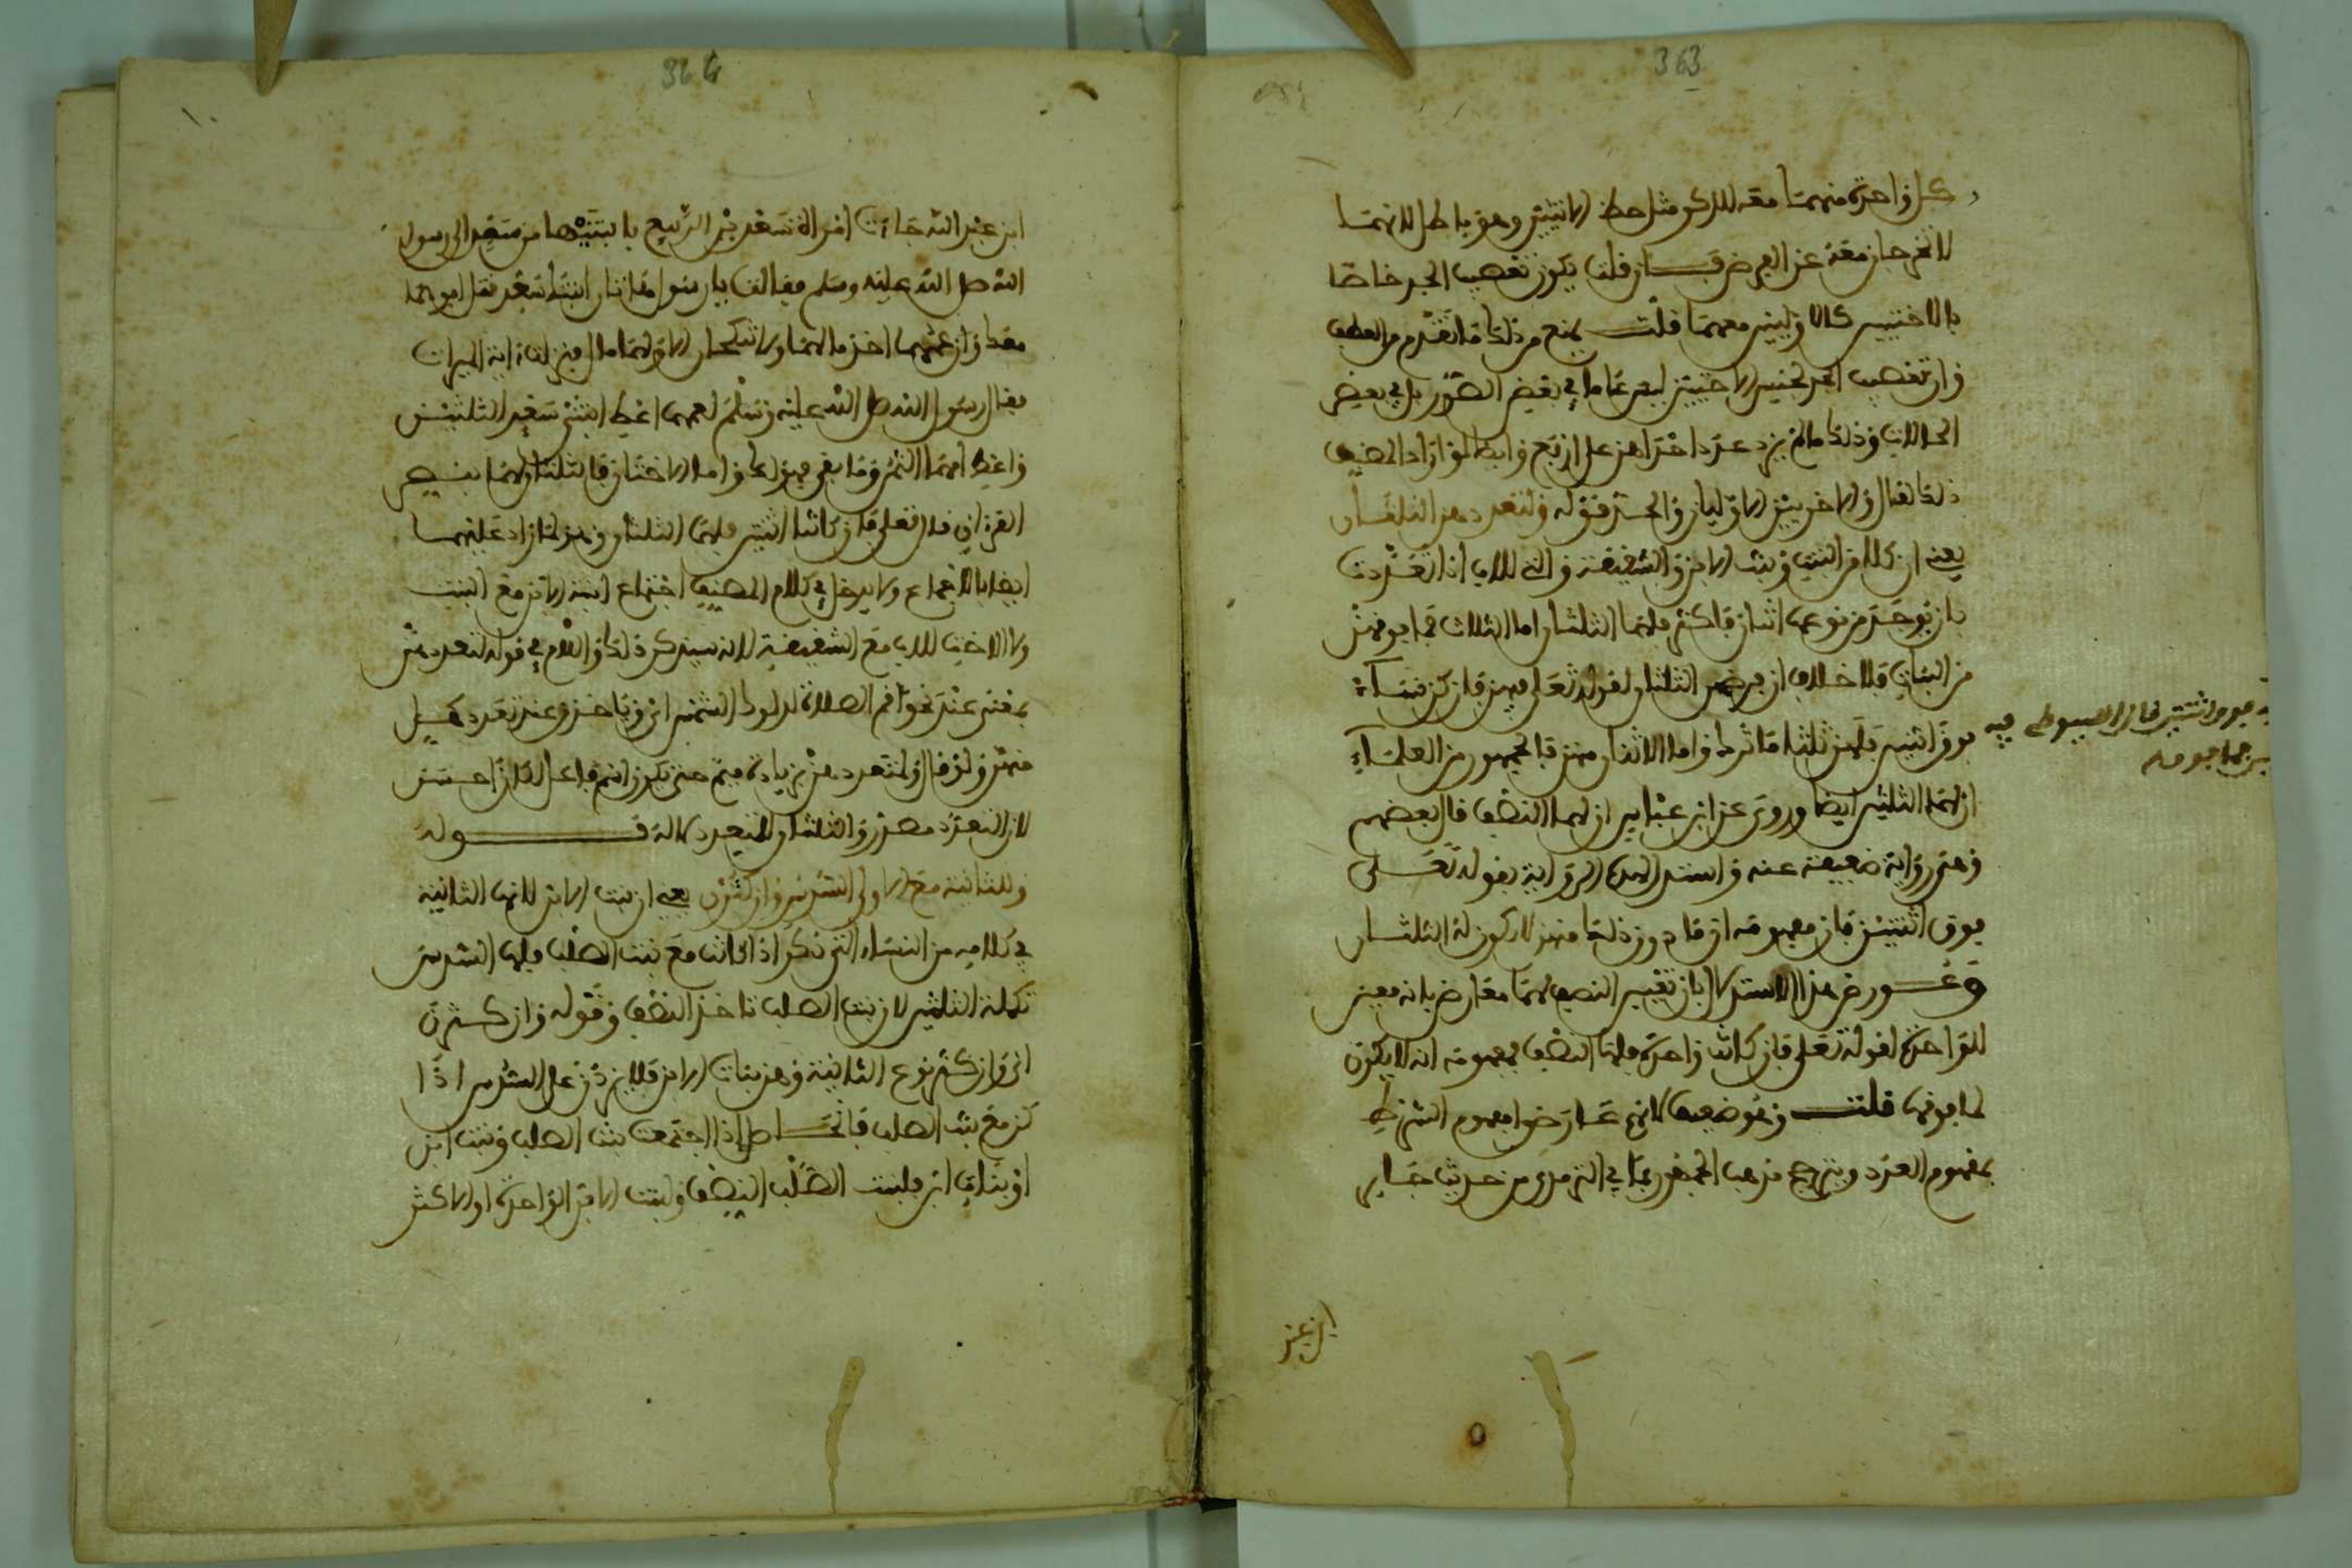 363
كل واحدة منهما معه للذكر مثل حظ الانثيين وهو باطل لانهما
لا تخرجان معه عن الفرض فان قلت يكون تعصيب الجد خاصا
بالاختين كالاوليين معهما قلت يمنع من ذلك ما تقدم من العطف
وان تعصيب الجد لجنس الاختين ليس عاما في بعض الصور بل في بعض
الحالات وذلك ما لم يزد عدد اخواهن على اربع وايضا لو اراد المصنف
ذلك لقال والاخريين الاوليان والجد قوله ولتعددهن الثلثان
يعني ان كلا من البنت وبنت الابن والشقيقة والتي للاب اذا تعددت
بان يوجد من نوعها اثنان فاكثر فلهما الثلثان اما الثلاث فما فوقهن
من البنات فلا خلاف ان فرضهن الثلثان لقوله تعالى فيهن فان كن نساء
فوق اثنتين فلهن ثلثا ما ترك واما الاثنتان منهن فالجمهور من العلماء
ان لهما الثلثين ايضا وروي عن ابن عباس ان لهما النصف قال بعضهم
وهي رواية ضعيفة عنه واستدل لهذه الرواية بقوله تعالى
فوق اثنتين فان مفهومه ان ما دون ذلك منهن لا يكون له الثلثان
وعورض هذا الاستدلال بان تعيين النصف لهما معارض بانه معين
للواحدة لقوله تعالى فان كانت واحدة فلها النصف فمفهومه انه لا يكون
لما فوقها قلت وهو ضعيف لانهم عارضوا مفهوم الشرط
بمفهوم العدد ويترجح مذهب الجمهور بما في الترمذي من حديث جابر
ابن عبد
فوق اثنتين قال السيوطي فيه
364
ابن عبد الله جاءت امراة سعد بن الربيع بابنتيها من سعد الى رسول
الله صلى الله عليه وسلم فقالت يا رسول الله هاتان ابنتا سعد قتل ابوهما
معك وان عمهما اخذ مالهما ولا تنكحان الا ولهما مال فنزلت ءاية الميراث
فقال رسول الله صلى الله عليه وسلم لعمهما اعط ابنتي سعد الثلثين
واعط امهما الثمن وما بقي فهو لك واما الاختان فالثلثان لهما بنص
القرءان قال تعالى فان كانتا اثنتين فلهما الثلثان وهو لما زاد عليهما
ايضا بالاجماع ولا يدخل في كلام المصنف اجتماع ابنة الابن مع البنت
ولا الاخت للاب مع الشقيقة لانه سيذكر ذلك واللام في قوله لتعددهن
بمعنى عند نحو اقم الصلاة لدلوك الشمس اي وياخذ وعند تعدد كل
منهن ولو قال ولمتعددهن بزيادة ميم حتى يكون اسم فاعل لكان احسن
لان التعدد مصدر والثلثان للمتعدد لا له قوله
وللثانية مع الاولى السدس وان كثرن يعني ان بنت الابن لانها الثانية
في كلامه من النساء التي ذكر اذا كانت مع بنت الصلب فلها السدس
تكملة الثلثين لان بنت الصلب تاخذ النصف وقوله وان كثرن
اي وان كثر نوع الثانية وهن بنات الابن فلا يزدن على السدس اذا
كن مع بنت الصلب فالحاصل اذا اجتمعت بنت الصلب وبنت ابن
او بنات ابن فلبنت الصلب النصف ولبنت الابن الواحدة او الاكثر